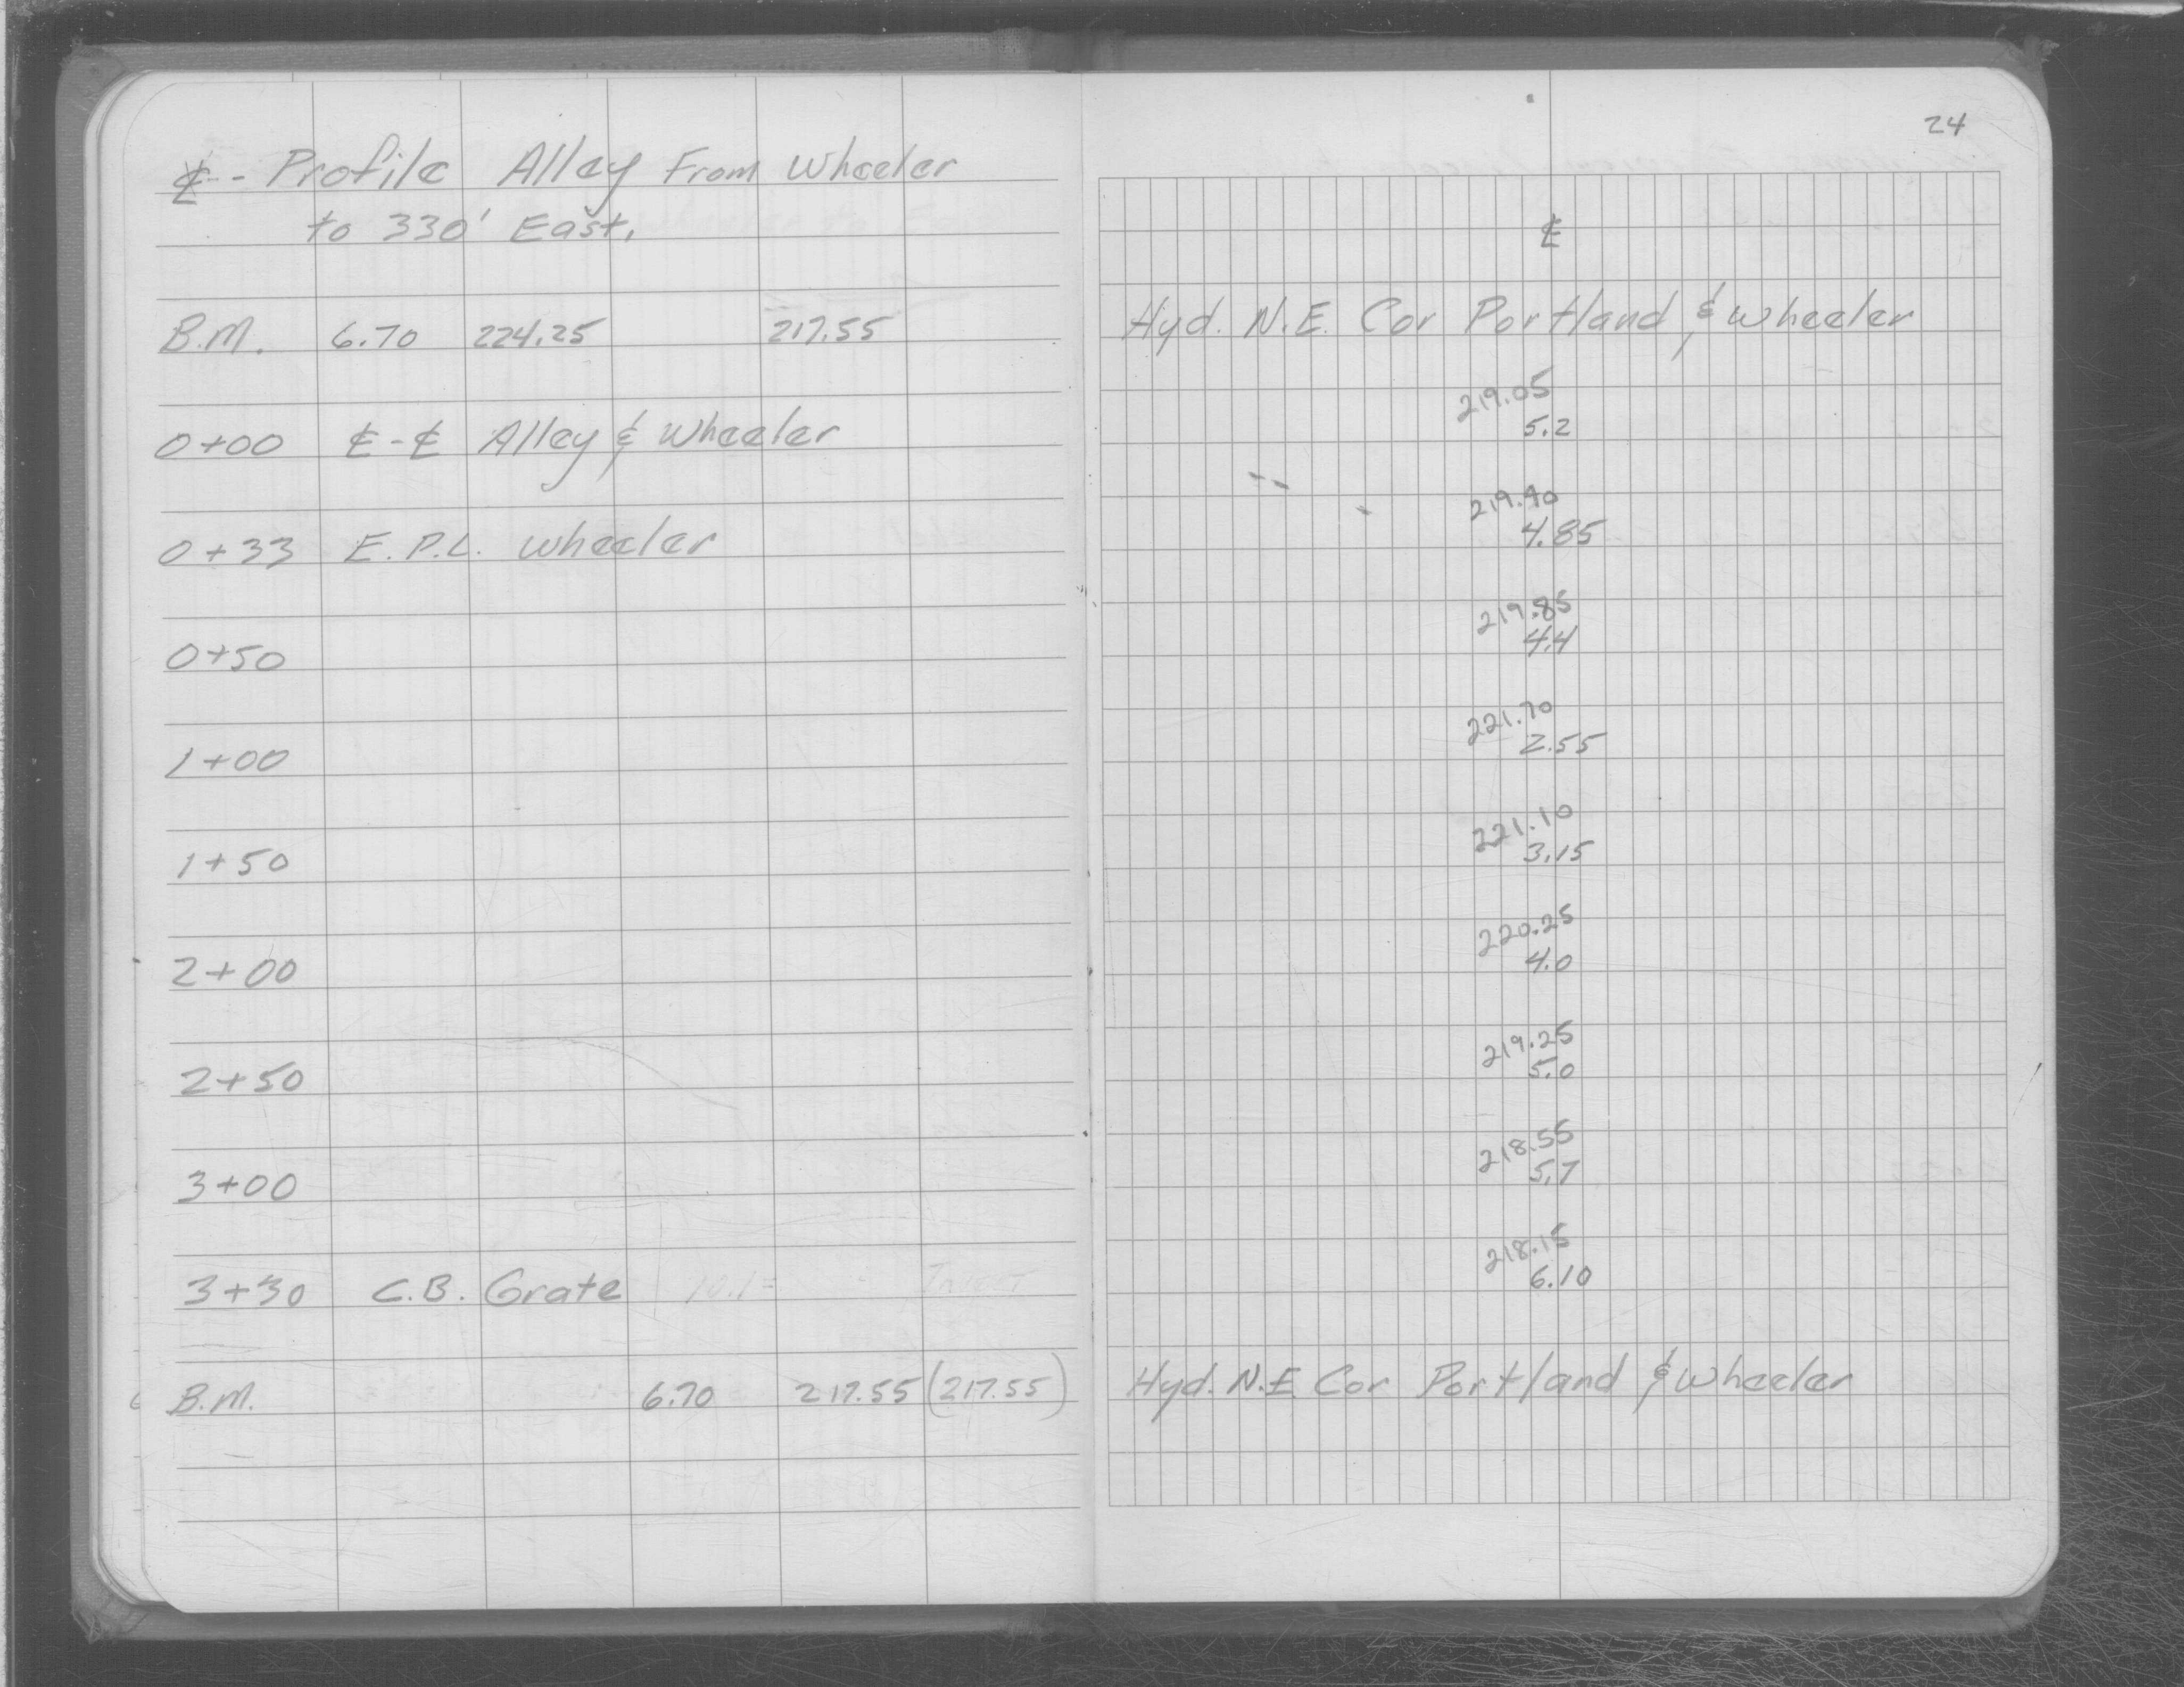 24
℄ - Profile Alley From Wheeler
to 330' East.
℄
B.M. 6.70 224.25 217.55 Hyd. N.E. Cor Portland & Wheeler
219.05
0+00 ℄-℄ Alley & Wheeler 5.2
219.40
0+33 E.P.L. Wheeler 4.85
219.85
0+50 4.4
221.70
1+00 2.55
221.10
1+50 3.15
220.25
2+00 4.0
219.25
2+50 5.0
218.55
3+00 5.7
218.15
3+30 C.B. Grate 6.10
B.M. 6.70 217.55 (217.55) Hyd. N.E Cor Portland & Wheeler